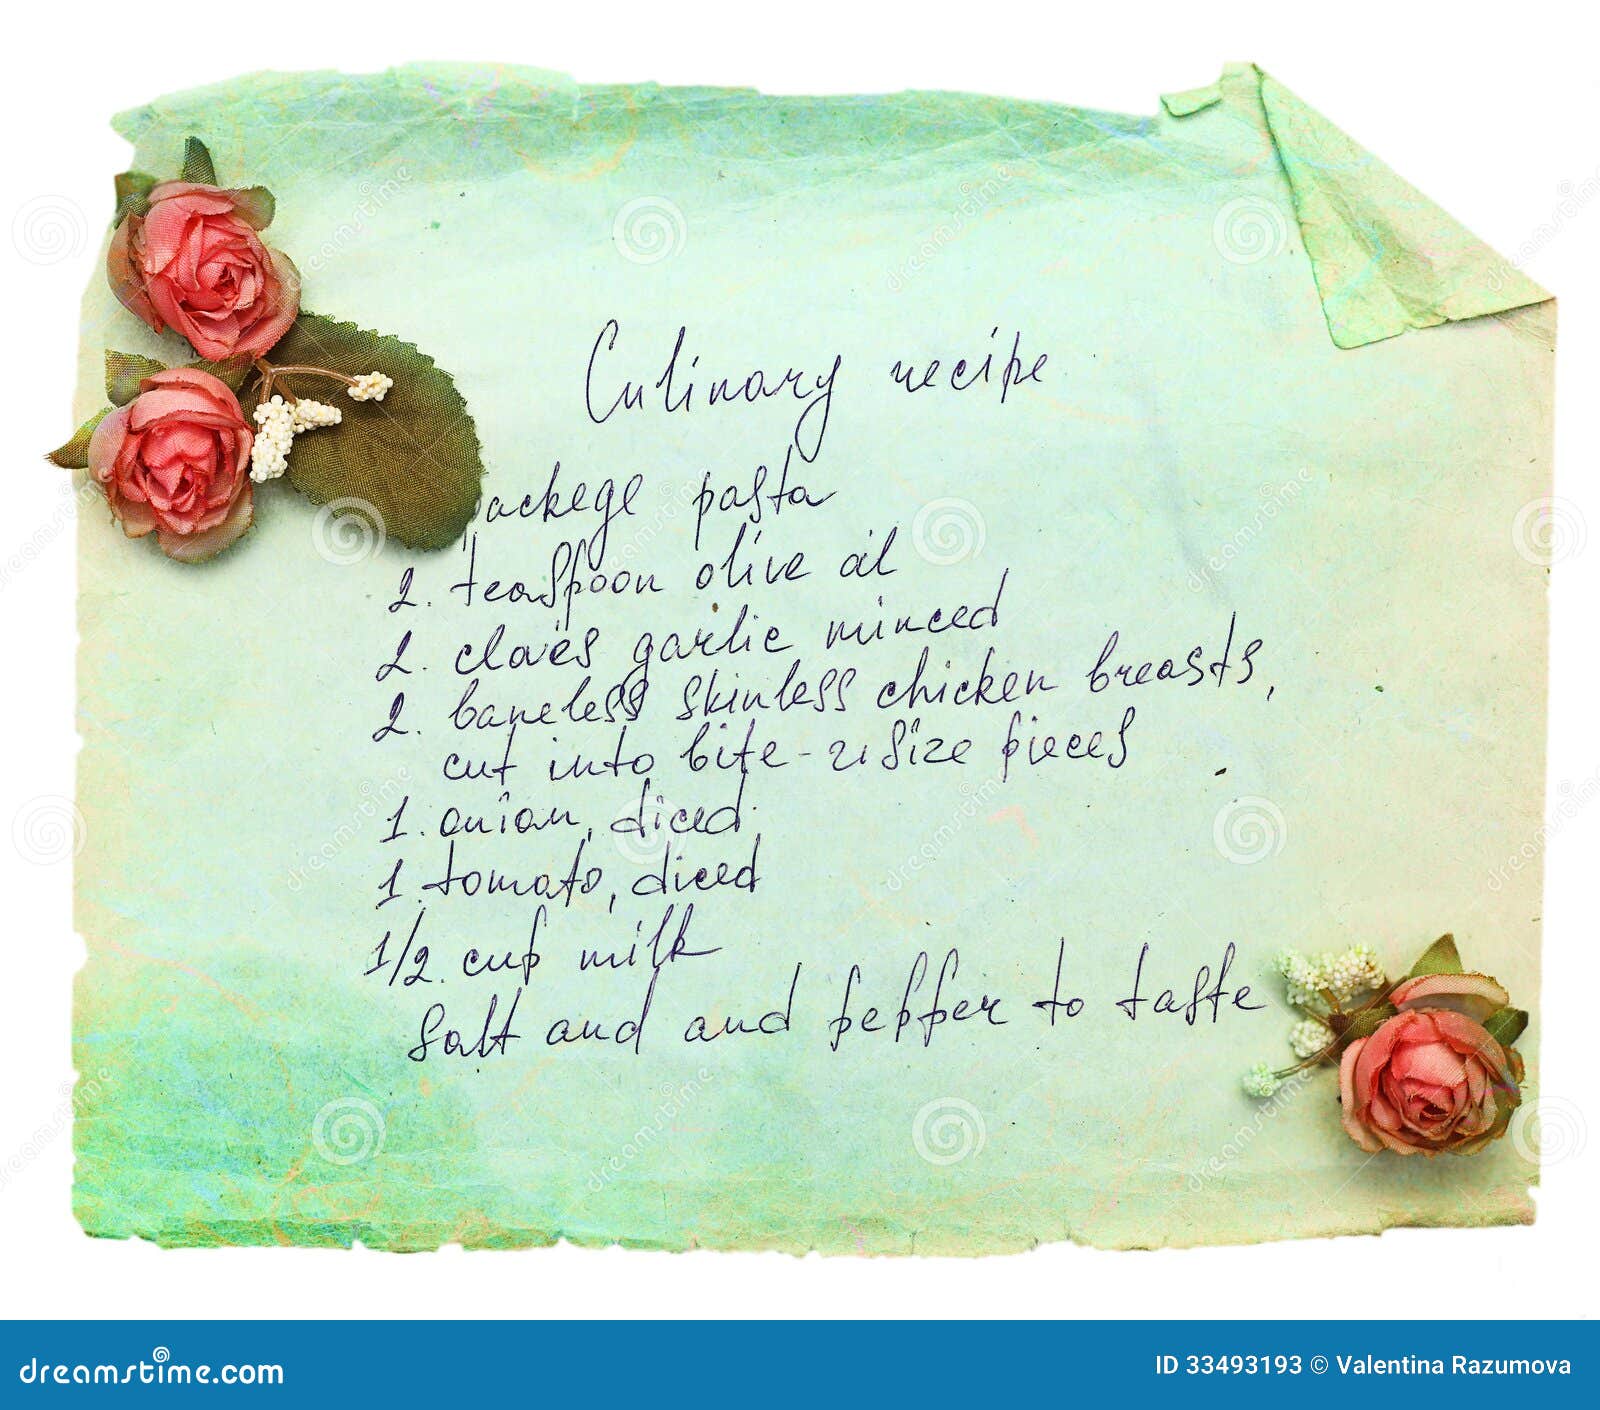 Culinary recipe
packege pasta
2. teaspoon olive oil
2. cloves garlic minced
2. baneless skinless chicken breasts,
cut into bite-size pieces
1. onion, diced,
1. tomato, diced
1/2. cup milk
Salt and and pepper to taste
dreamstime.com
ID 33493193 © Valentina Razumova